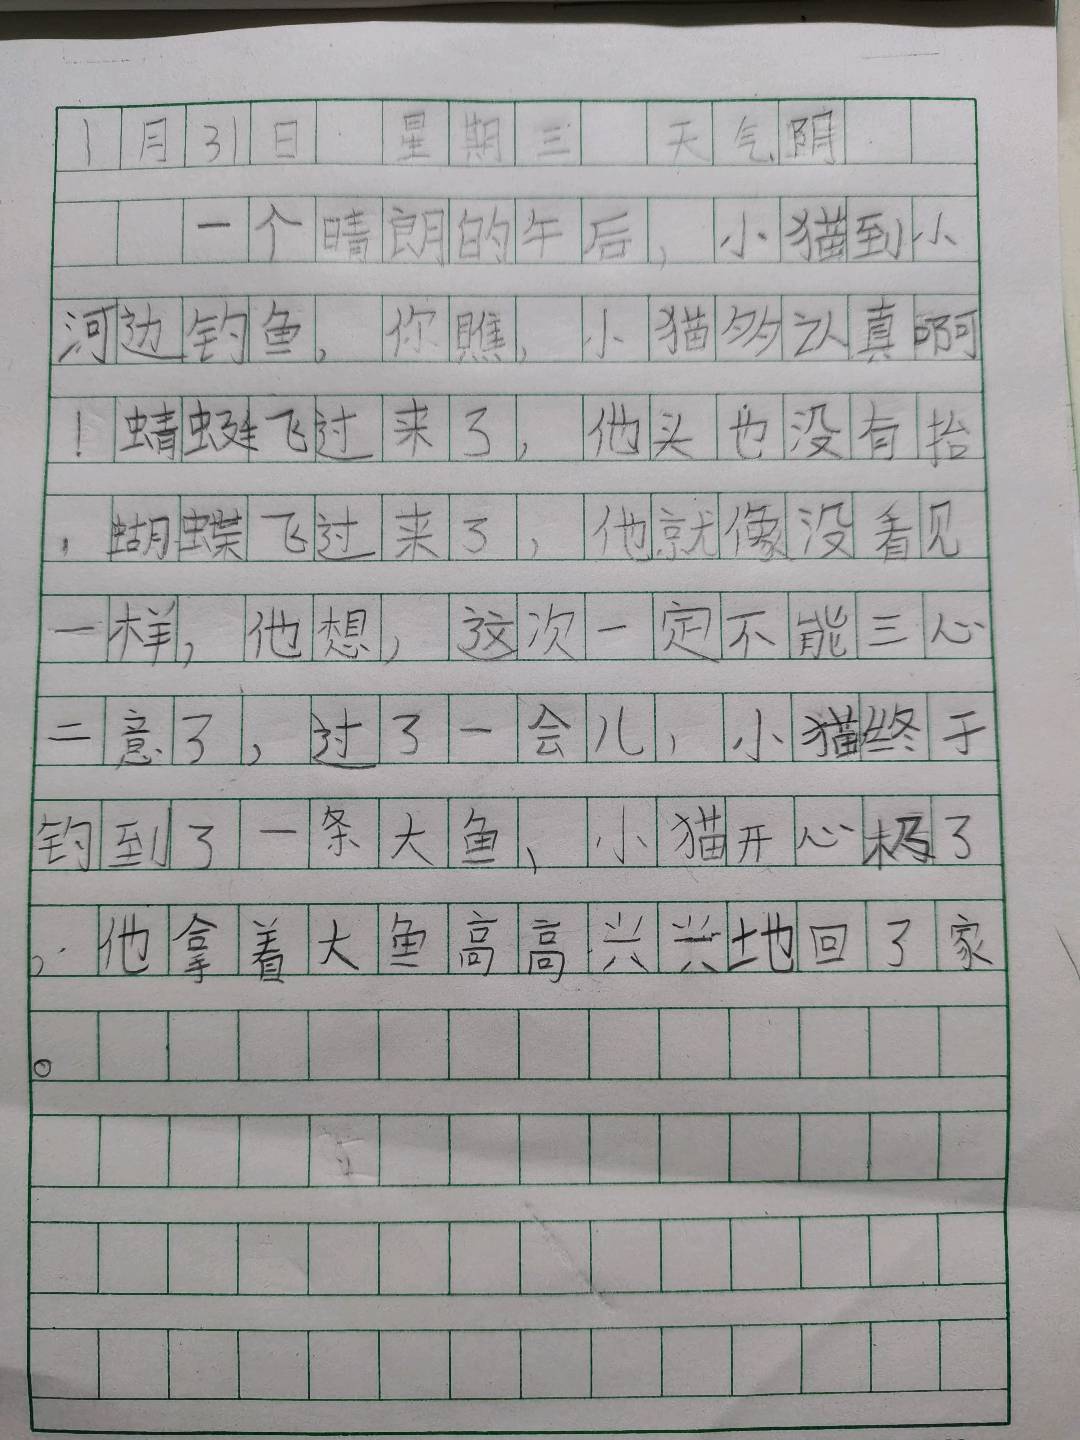 1月31日 星期三 天气阴
一个晴朗的午后，小猫到小
河边钓鱼，你瞧，小猫多认真啊
！蜻蜓飞过来了，他头也没有抬
，蝴蝶飞过来了，他就像没看见
一样，他想，这次一定不能三心
二意了，过了一会儿，小猫终于
钓到了一条大鱼、小猫开心极了
，他拿着大鱼高高兴兴地回了家
。